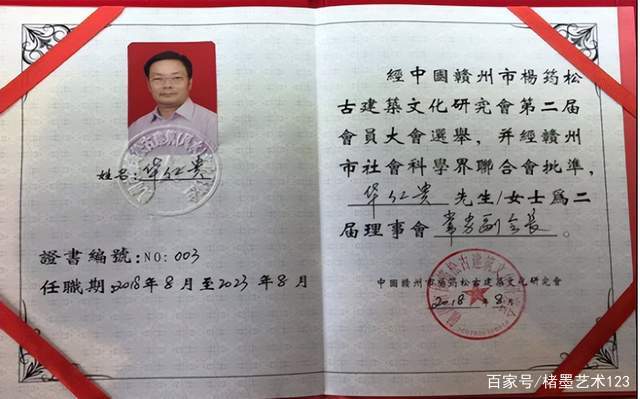 姓名：华仁贵
證書編號：NO：003
任職期：2018年8月至2023年8月
經中國贛州市楊筠松
古建築文化研究會第二届
會員大會選舉，并經贛州
市社會科學界聯合會批準，
华仁贵 先生/女士爲二
届理事會 常务副会长 。
中國贛州市楊筠松古建築文化研究會
2018年8月
百家号/楮墨艺术123